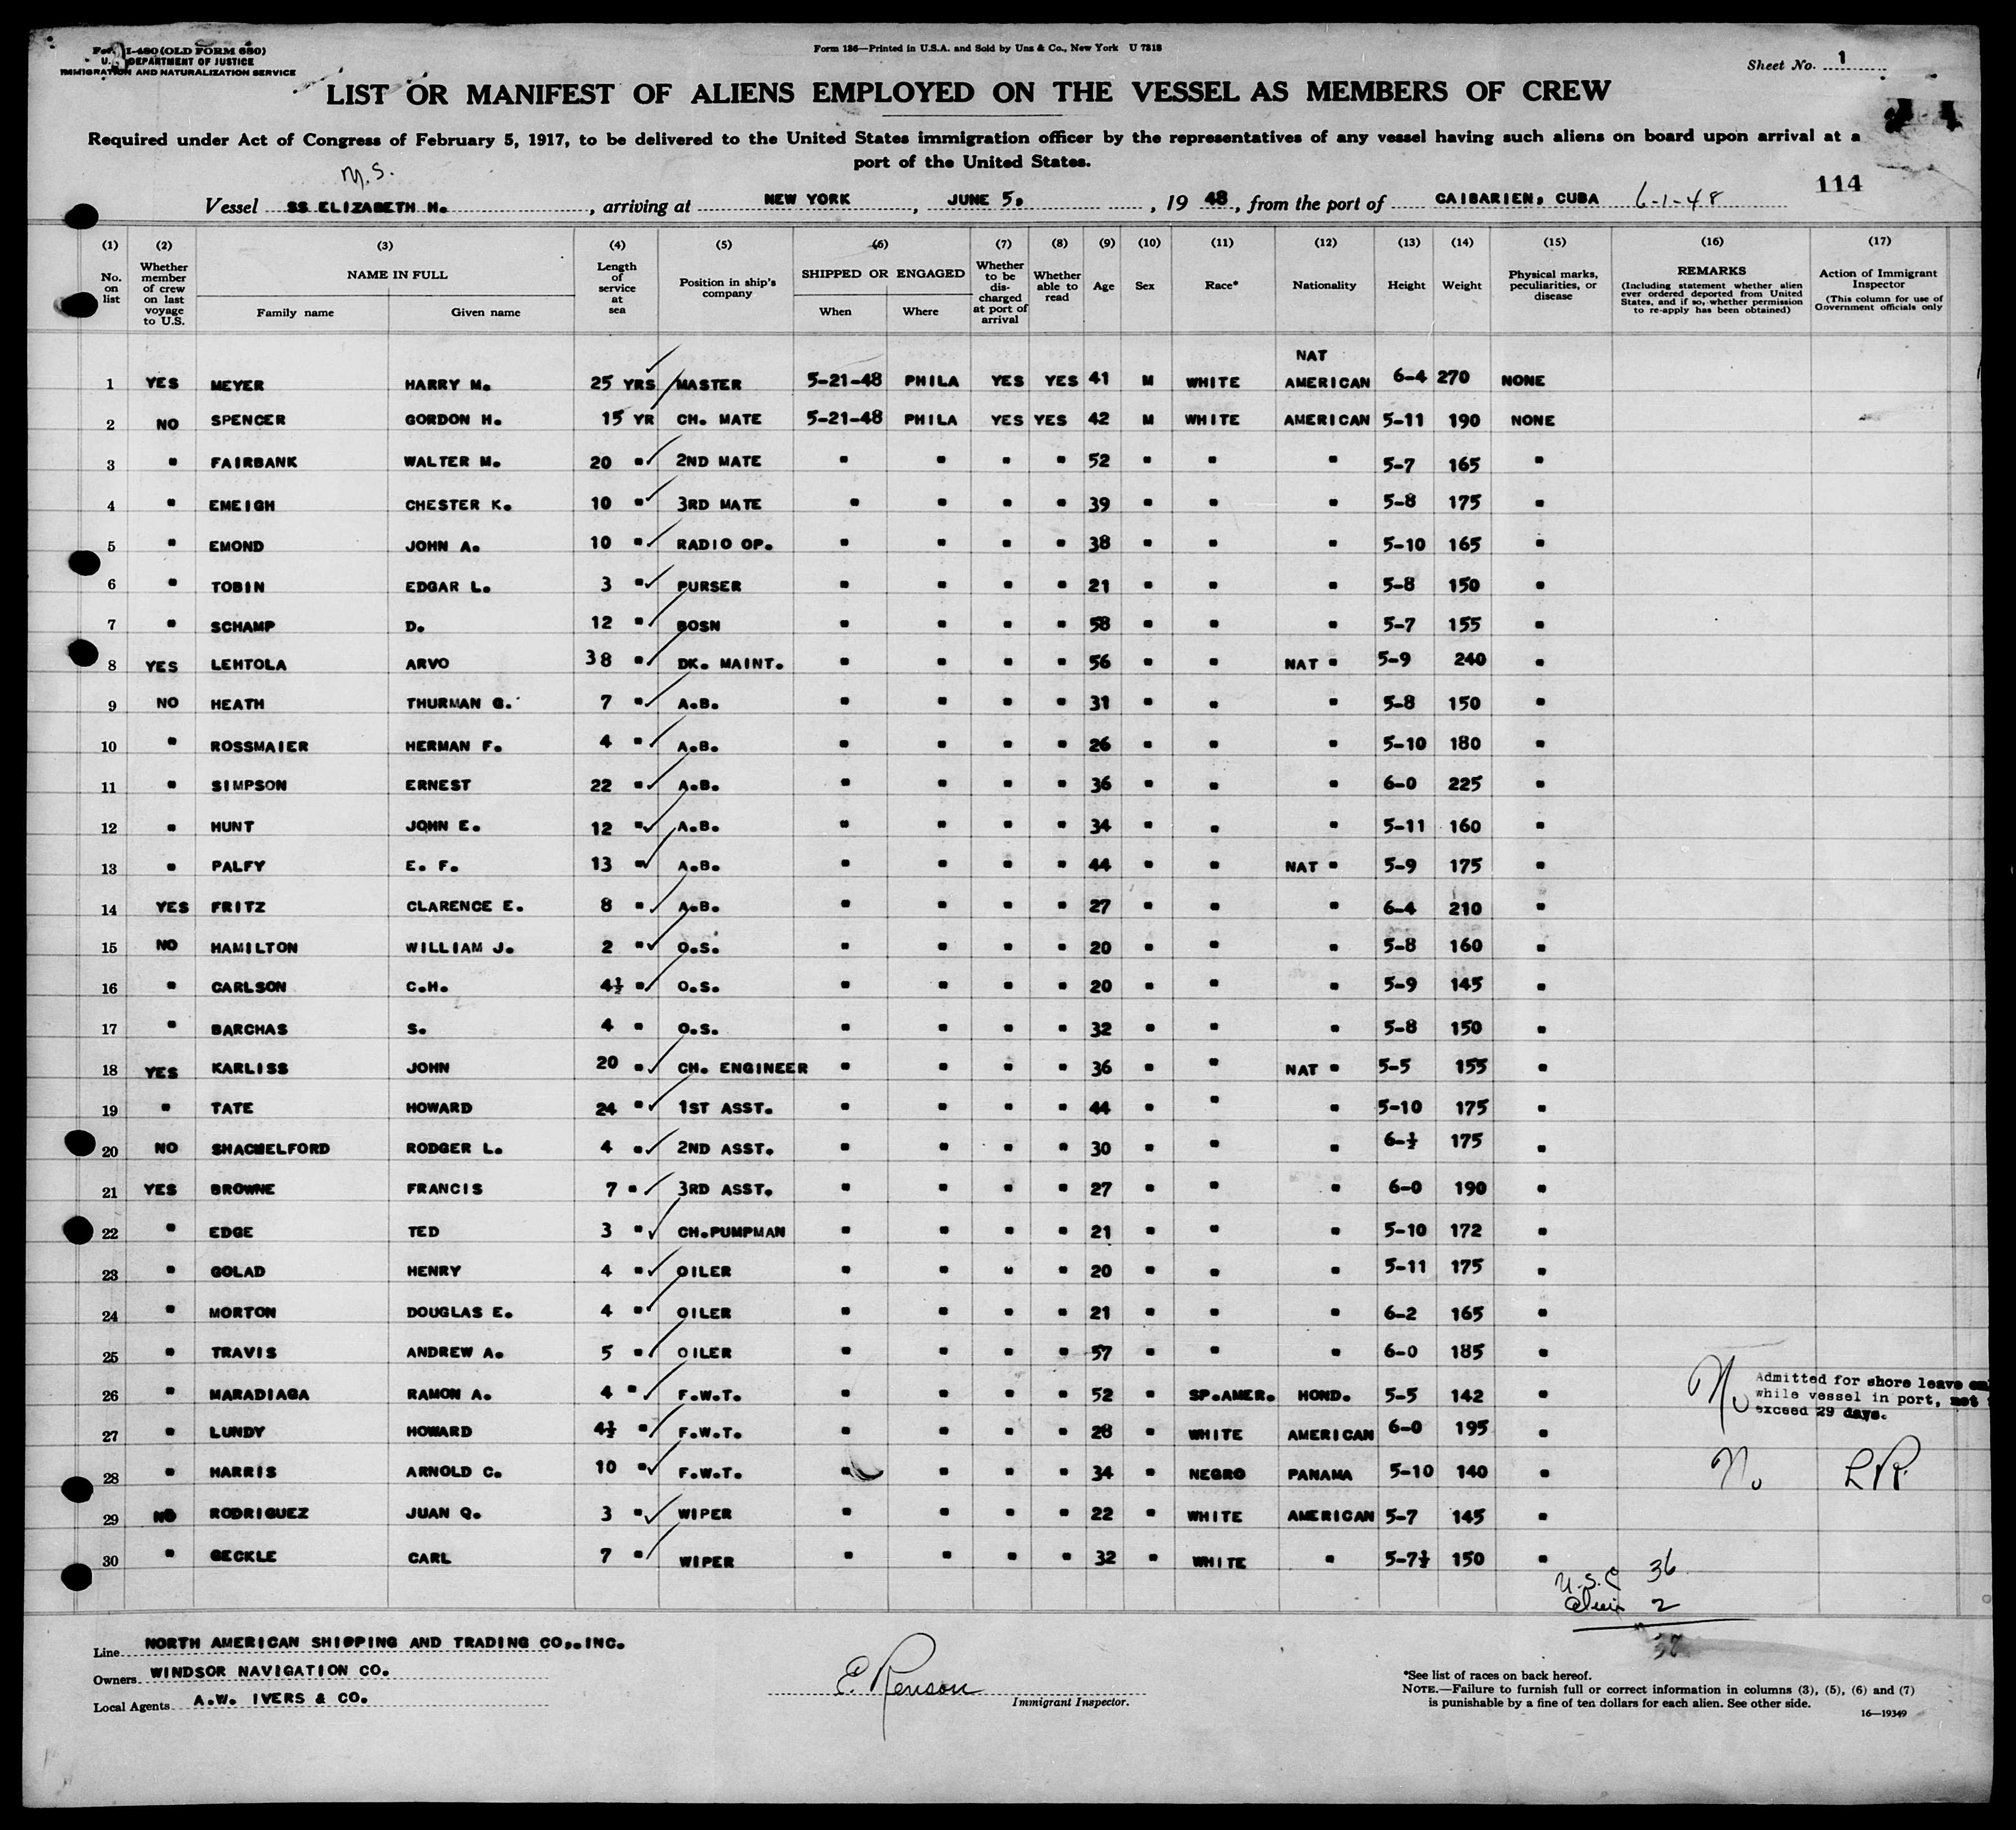 Form I-480 (OLD FORM 680)
U. S. DEPARTMENT OF JUSTICE
IMMIGRATION AND NATURALIZATION SERVICE
Form 186—Printed in U.S.A. and Sold by Unz & Co., New York U 7818
Sheet No. 1
LIST OR MANIFEST OF ALIENS EMPLOYED ON THE VESSEL AS MEMBERS OF CREW
Required under Act of Congress of February 5, 1917, to be delivered to the United States immigration officer by the representatives of any vessel having such aliens on board upon arrival at a
port of the United States.
M.S.
114
Vessel SS ELIZABETH H. , arriving at NEW YORK , JUNE 5. , 19 48 , from the port of CAIBARIEN, CUBA 6-1-48
(1) (2) (3) (4) (5) (6) (7) (8) (9) (10) (11) (12) (13) (14) (15) (16) (17)
No. on list
Whether member of crew on last voyage to U.S.
NAME IN FULL
Family name Given name
Length of service at sea
Position in ship's company
SHIPPED OR ENGAGED
When Where
Whether to be discharged at port of arrival
Whether able to read
Age
Sex
Race*
Nationality
Height
Weight
Physical marks, peculiarities, or disease
REMARKS
(Including statement whether alien ever ordered deported from United States, and if so, whether permission to re-apply has been obtained)
Action of Immigrant Inspector
(This column for use of Government officials only
NAT
1 YES MEYER HARRY M. 25 YRS MASTER 5-21-48 PHILA YES YES 41 M WHITE AMERICAN 6-4 270 NONE
2 NO SPENCER GORDON H. 15 YR CH. MATE 5-21-48 PHILA YES YES 42 M WHITE AMERICAN 5-11 190 NONE
3 " FAIRBANK WALTER M. 20 " 2ND MATE " " " " 52 " " " 5-7 165 "
4 " EMEIGH CHESTER K. 10 " 3RD MATE " " " " 39 " " " 5-8 175 "
5 " EMOND JOHN A. 10 " RADIO OP. " " " " 38 " " " 5-10 165 "
6 " TOBIN EDGAR L. 3 " PURSER " " " " 21 " " " 5-8 150 "
7 " SCHAMP D. 12 " BOSN " " " " 58 " " " 5-7 155 "
8 YES LEHTOLA ARVO 38 " DK. MAINT. " " " " 56 " " NAT " 5-9 240 "
9 NO HEATH THURMAN G. 7 " A.B. " " " " 31 " " " 5-8 150 "
10 " ROSSMAIER HERMAN F. 4 " A.B. " " " " 26 " " " 5-10 180 "
11 " SIMPSON ERNEST 22 " A.B. " " " " 36 " " " 6-0 225 "
12 " HUNT JOHN E. 12 " A.B. " " " " 34 " " " 5-11 160 "
13 " PALFY E. F. 13 " A.B. " " " " 44 " " NAT " 5-9 175 "
14 YES FRITZ CLARENCE E. 8 " A.B. " " " " 27 " " " 6-4 210 "
15 NO HAMILTON WILLIAM J. 2 " O.S. " " " " 20 " " " 5-8 160 "
16 " CARLSON C.H. 4½ " O.S. " " " " 20 " " " 5-9 145 "
17 " BARCHAS S. 4 " O.S. " " " " 32 " " " 5-8 150 "
18 YES KARLISS JOHN 20 " CH. ENGINEER " " " " 36 " " NAT " 5-5 155 "
19 " TATE HOWARD 24 " 1ST ASST. " " " " 44 " " " 5-10 175 "
20 NO SHACHELFORD RODGER L. 4 " 2ND ASST. " " " " 30 " " " 6-½ 175 "
21 YES BROWNE FRANCIS 7 " 3RD ASST. " " " " 27 " " " 6-0 190 "
22 " EDGE TED 3 " CH.PUMPMAN " " " " 21 " " " 5-10 172 "
23 " GOLAD HENRY 4 " OILER " " " " 20 " " " 5-11 175 "
24 " MORTON DOUGLAS E. 4 " OILER " " " " 21 " " " 6-2 165 "
25 " TRAVIS ANDREW A. 5 " OILER " " " " 57 " " " 6-0 185 "
26 " MARADIAGA RAMON A. 4 " F.W.T. " " " " 52 " SP.AMER. HOND. 5-5 142 " No Admitted for shore leave
while vessel in port, not
exceed 29 days.
27 " LUNDY HOWARD 4½ " F.W.T. " " " " 28 " WHITE AMERICAN 6-0 195 "
28 " HARRIS ARNOLD C. 10 " F.W.T. " " " " 34 " NEGRO PANAMA 5-10 140 " No LR
29 NO RODRIGUEZ JUAN Q. 3 " WIPER " " " " 22 " WHITE AMERICAN 5-7 145 "
30 " GECKLE CARL 7 " WIPER " " " " 32 " WHITE " 5-7½ 150 "
U.S.C 36
Alien 2
Line NORTH AMERICAN SHIPPING AND TRADING CO., INC.
Owners WINDSOR NAVIGATION CO.
Local Agents A.W. IVERS & CO.
E. Renson
Immigrant Inspector.
*See list of races on back hereof.
NOTE.—Failure to furnish full or correct information in columns (3), (5), (6) and (7)
is punishable by a fine of ten dollars for each alien. See other side.
16—19349